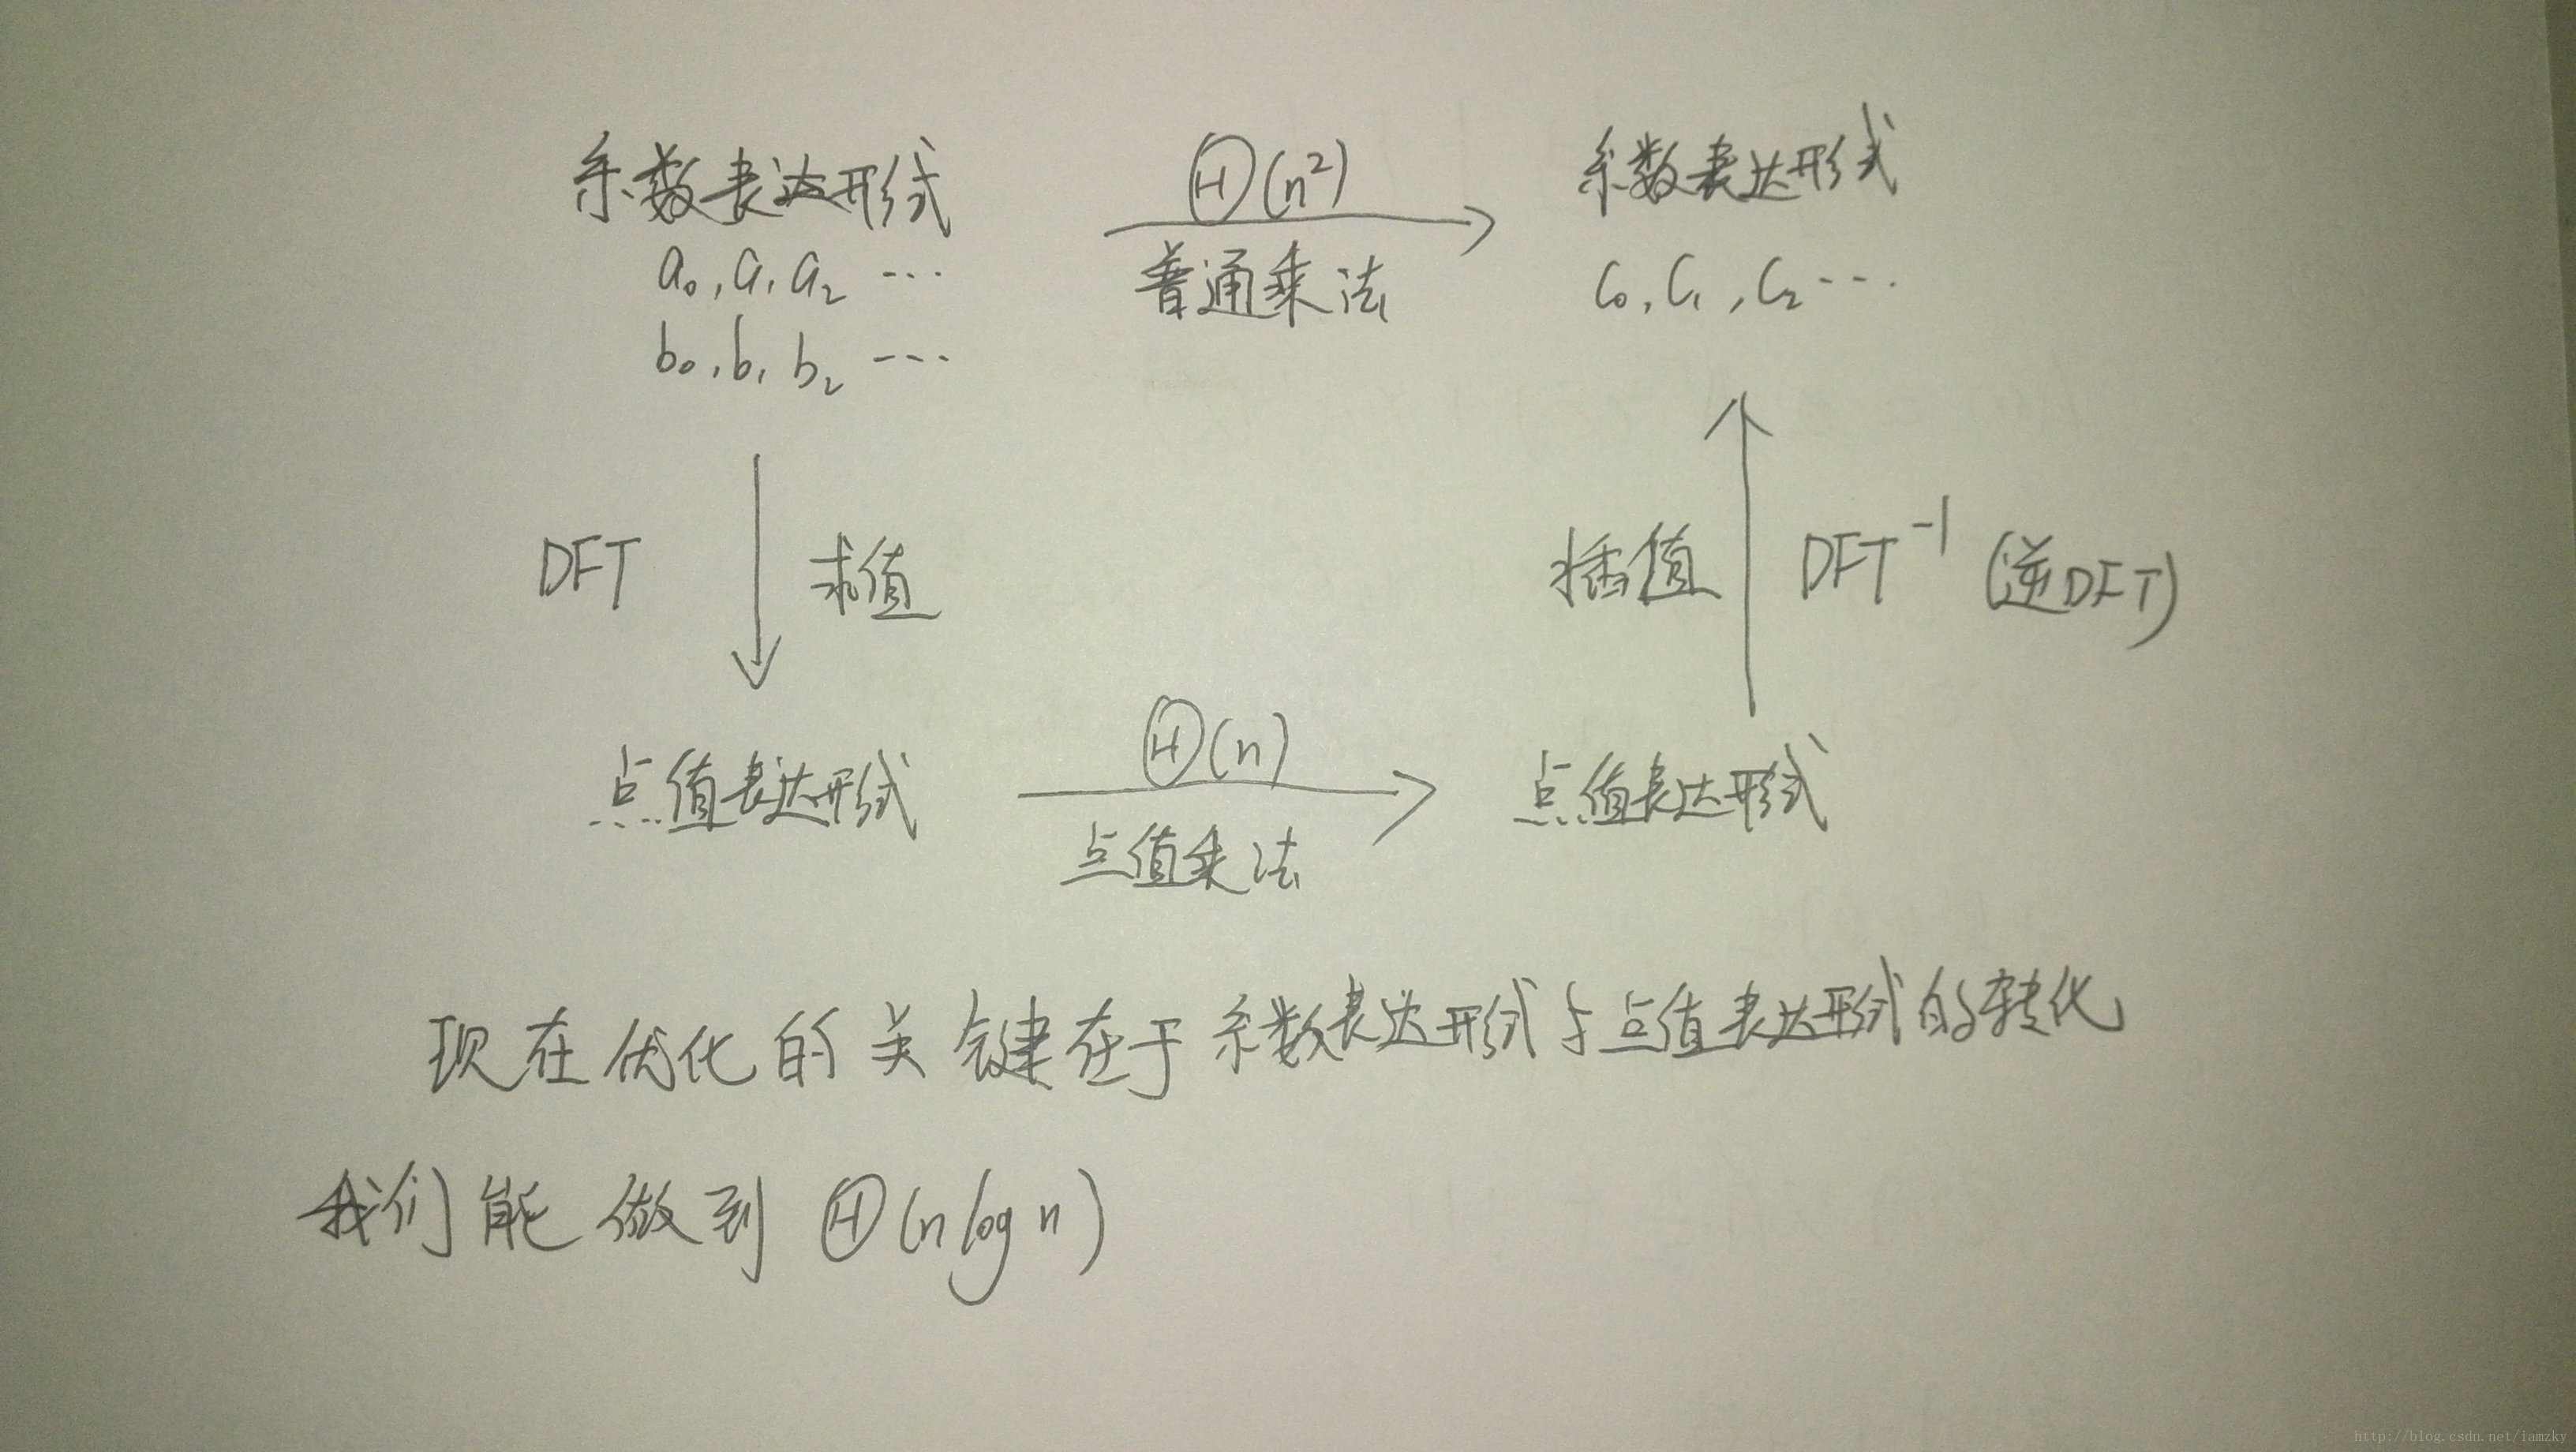 系数表达形式 Θ(n²) 系数表达形式
a₀, a₁ a₂ ··· 普通乘法 c₀, c₁, c₂ ···
b₀, b₁ b₂ ···
DFT 求值 插值 DFT⁻¹ (逆DFT)
点值表达形式 Θ(n) 点值表达形式
点值乘法
现在优化的关键在于系数表达形式与点值表达形式的转化
我们能做到 Θ(n log n)
http://blog.csdn.net/iamzky